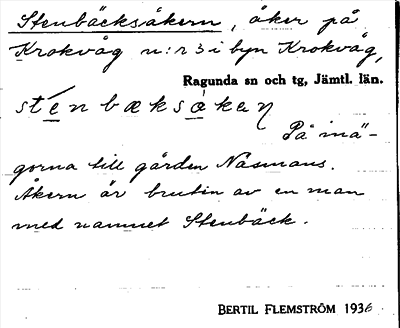 Stenbäcksåkern, åker på
Krokvåg n:r 3 i byn Krokvåg,
Ragunda sn och tg, Jämtl. län.
sténbæksåkeɳ
På inä-
gorna till gården Näsmans.
Åkern är bruten av en man
med namnet Stenbäck.
BERTIL FLEMSTRÖM 1936